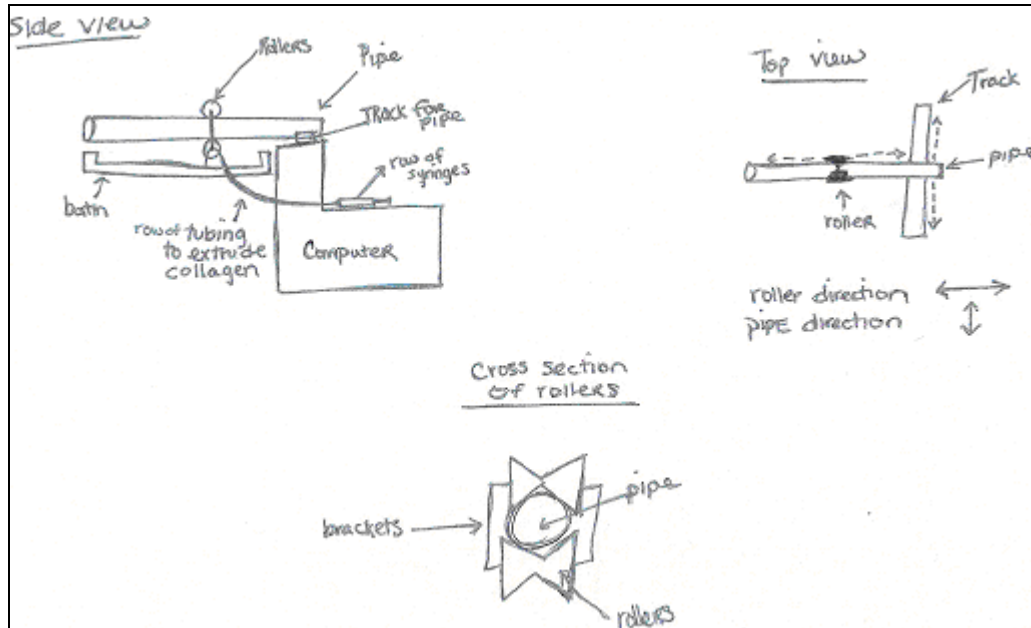 Side view
Rollers
Pipe
TRACK FOR
pipe
row of
syringes
batin
row of tubing
to extrude
collagen
Computer
Top view
Track
pipe
roller
roller direction
pipE direction
Cross section
of rollers
pipe
brackets
rollers